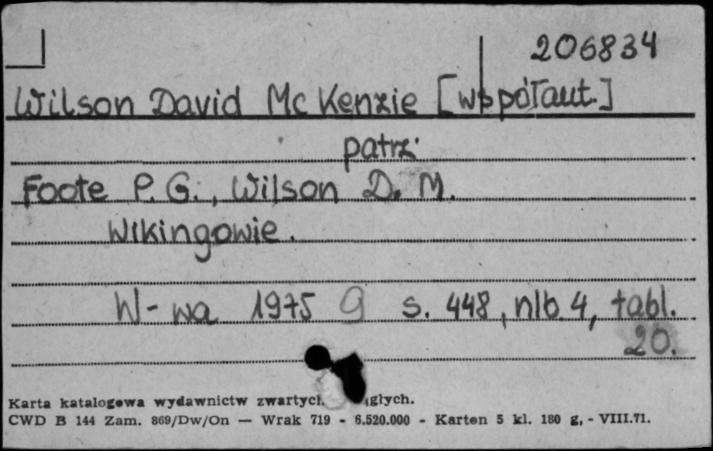 206834
Wilson David Mc Kenzie [współaut.]
patrz
Foote P. G., Wilson D. M.
Wikingowie.
W-wa 1975 g s. 448, nlb. 4, tabl.
20.
Karta katalogowa wydawnictw zwartych głych.
CWD B 144 Zam. 869/Dw/On — Wrak 719 - 6.520.000 - Karton 5 kl. 180 g, - VIII.71.